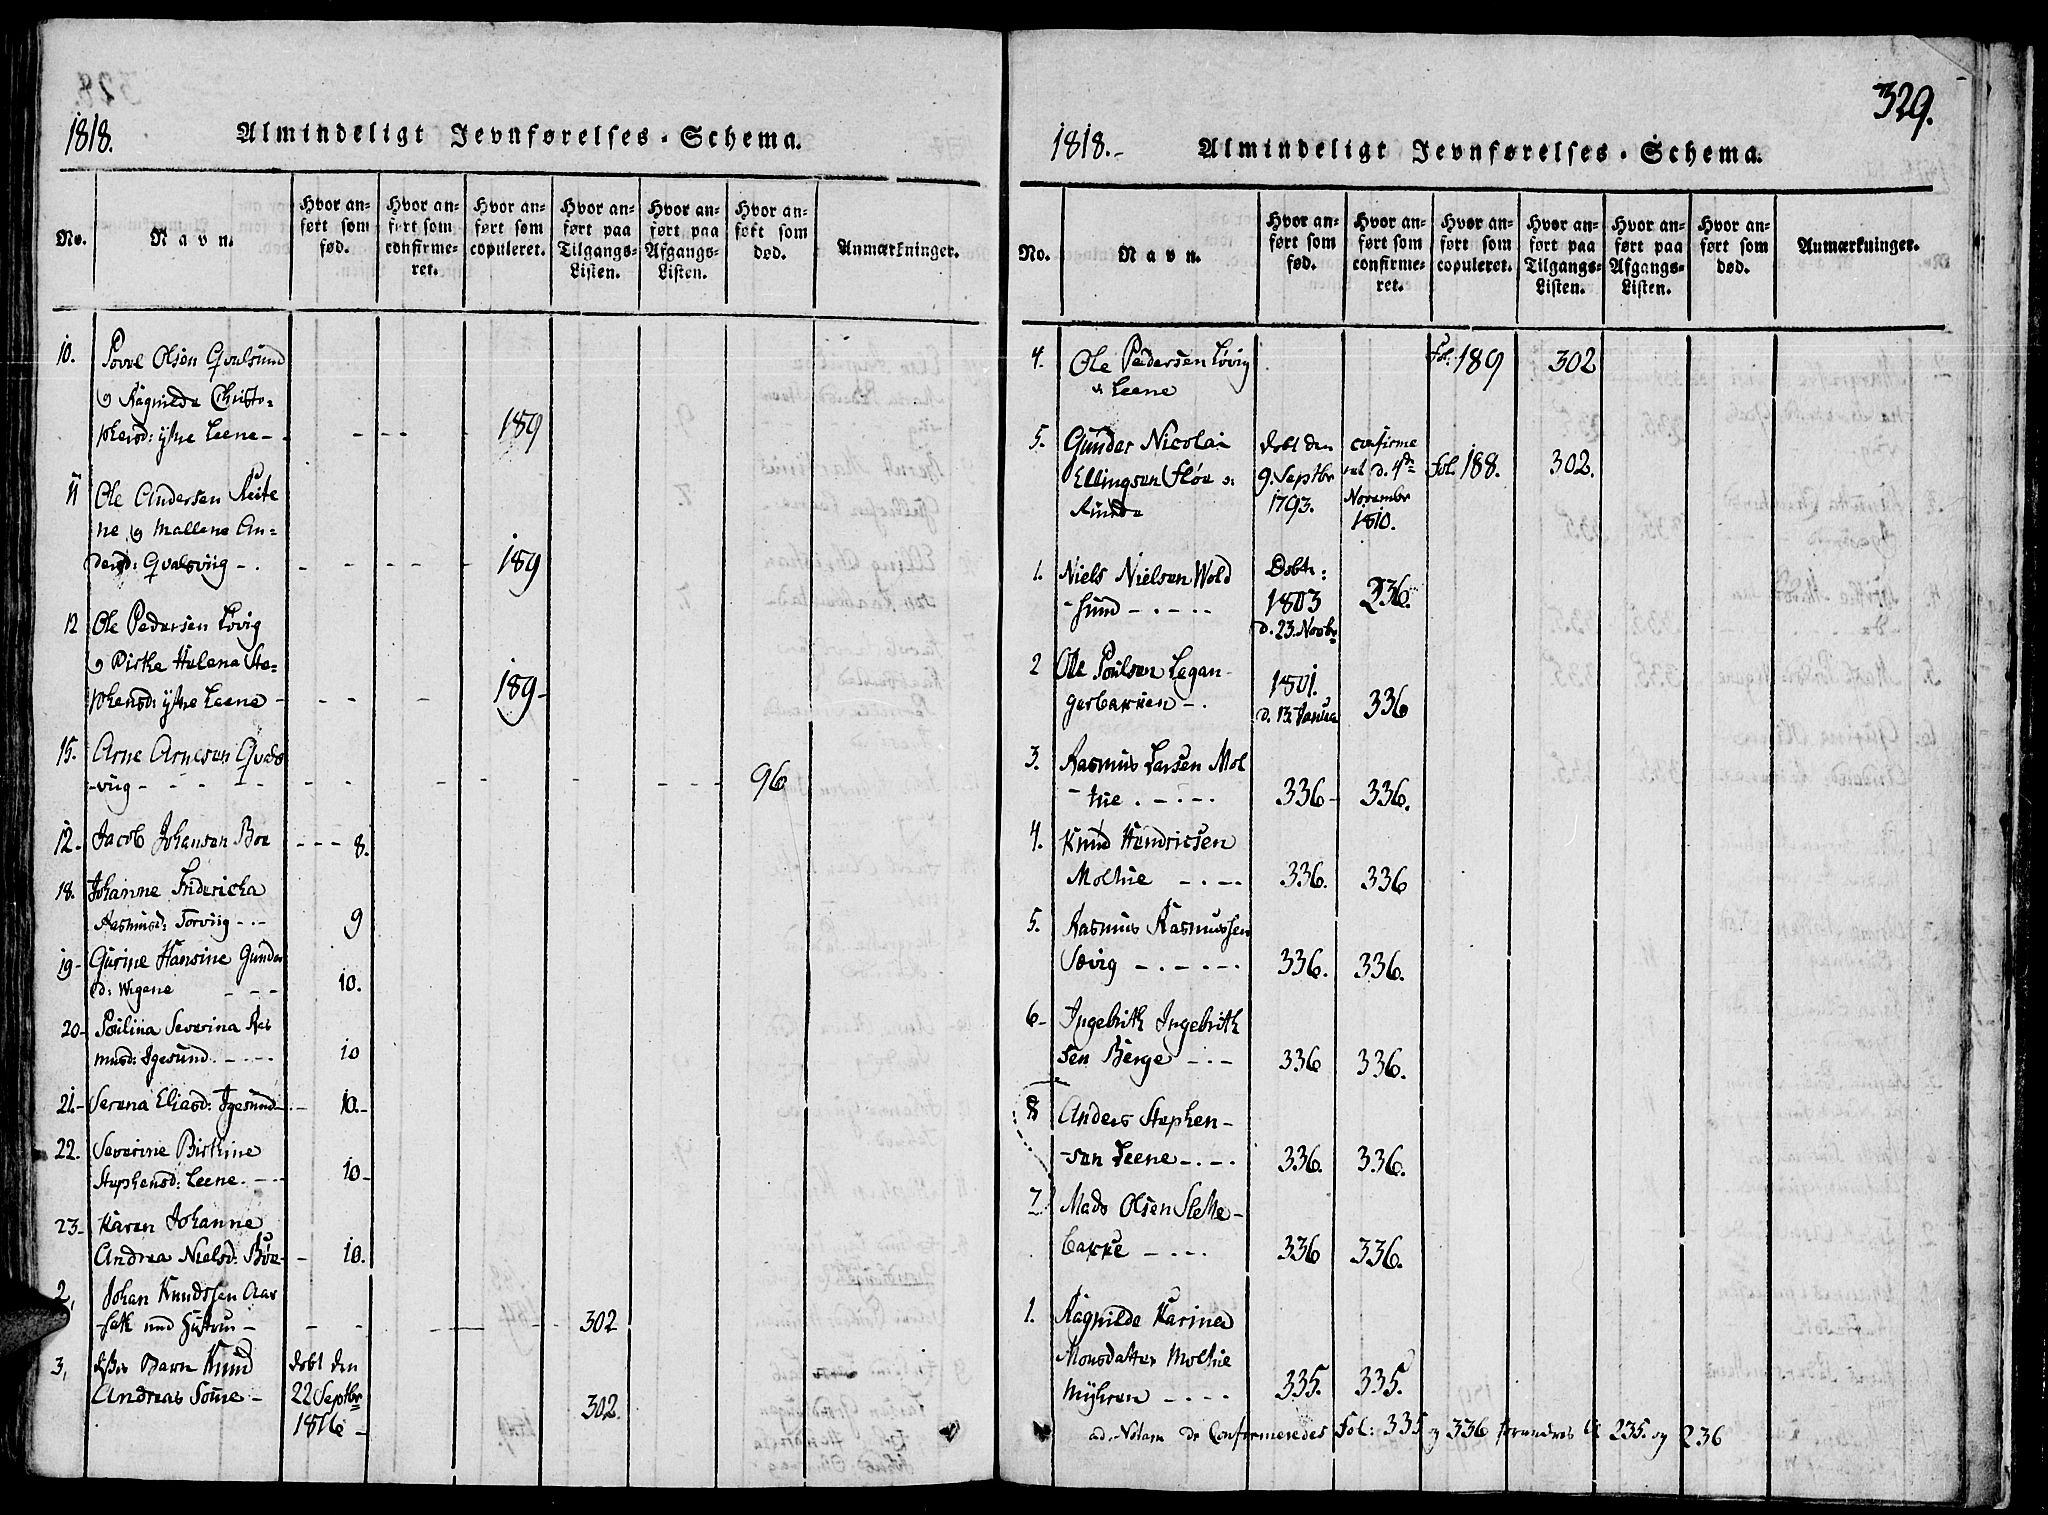 1818. Almindeligt Jevnførelses-Schema.
No. Navn. Hvor anført som fød. Hvor anført som confirmeret. Hvor anført som copuleret. Hvor anført paa Tilgangs-Listen. Hvor anført paa Afgangs-Listen. Hvor anført som død. Anmærkninger.
10. Povel Olsen Qvalsund
og Ragnilde Christo-
phersd: ytre Leene - - - - - 189
11 Ole Andersen Reite
ne og Mallene An-
dersd: Qvalsviig - - - - - 189
12 Ole Pedersen Løvig
og Birthe Helena Ste-
phensd: ytre Leene - - - - 189 -
15. Arne Arnesen Qvals
-viig - - - - - - - 96
12. Jacob Johansen Boe - - - 8.
18. Johanne Friderica
Rasmusd: Torviig - - 9
19 - Gurine Hansine Gunder
d: Wigene - - - 10.
20 - Poulina Severina Ras
musd: Igesund - - - 10
21. - Serena Eliasd: Igesund - - 10 -
22. Severine Birthine
Stephensd: Leene - - 10 -
23 - Karen Johanne
Andrea Nielsd: Böe - - 10.
2, Johan Knudssen Aar
-sæt med Hustru - - - - - 302
3, Barn Knud døbt den
Andreas Some - 22 Septbr 302.
1816 -
329.
1818. - Almindeligt Jevnførelses-Schema.
No. Navn. Hvor anført som fød. Hvor anført som confirmeret. Hvor anført som copuleret. Hvor anført paa Tilgangs-Listen. Hvor anført paa Afgangs-Listen. Hvor anført som død. Anmærkninger.
4. Ole Pedersen Løvig Fol: 189 302
Leene
5. Gunder Nicolai døbt den confirme
Ellingsen Fløe 9. Septbr ret d. 4de Fol. 188. 302.
Runde 1793. Novembr
1810.
1. Niels Nielsen Wold Døbt: 236.
-sund - - - 1803
d. 23. Novbr
2 Ole Poulsen Legan- 1801.
gerbakken - . d. 13 Janua 336
3. Rasmus Larsen Mol
-tue . - . - 336 - 336.
4. Knud Hendricsen
Moltue - . - 336. 336
5. Rasmus Rasmussen
Sævig - . - . - 336. 336.
6 - Ingebrith Ingebrith
sen Berge - . - 336 336.
8 Anders Stephen-
-sen Leene - . - 336. 336.
7 Mads Olsen Slette-
bakke - . - 336 336.
1. Ragnilde Karine
Monsdatter Moltue
Myhren - . - 335. 335.
ad Notam de Confirmeredes Fol: 335 og 336 forandres til 235. og 236